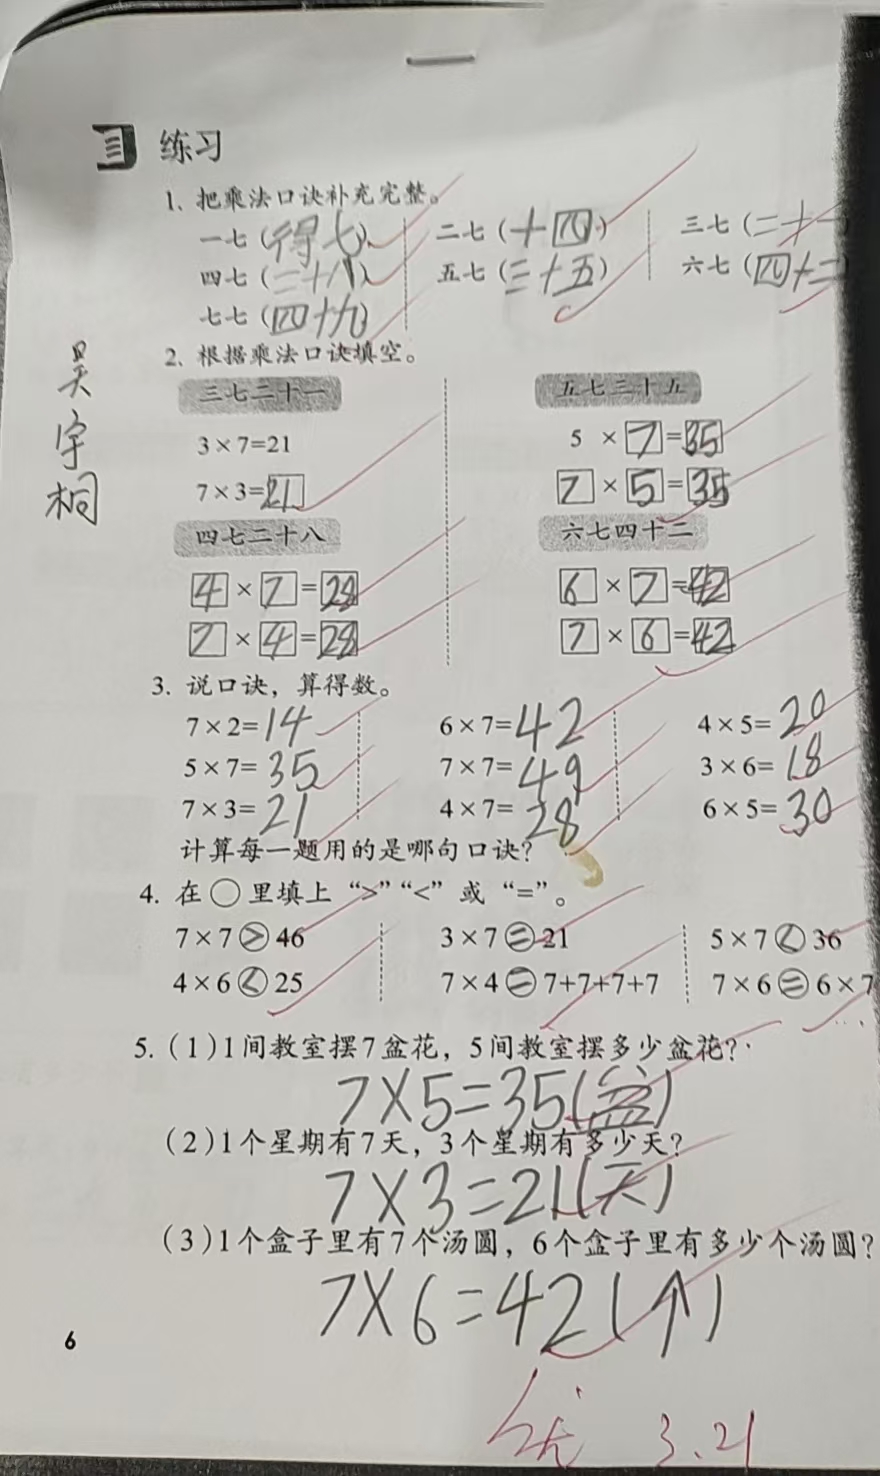 三 练习
1. 把乘法口诀补充完整。
一七(得七) 二七(十四) 三七(二十一
四七(二十八) 五七(三十五) 六七(四十二
七七(四十九)
2. 根据乘法口诀填空。
三七二十一 五七三十五
3×7=21 5×7=35
7×3=21 7×5=35
四七二十八 六七四十二
4×7=28 6×7=42
7×4=28 7×6=42
吴宇桐
3. 说口诀，算得数。
7×2=14 6×7=42 4×5=20
5×7=35 7×7=49 3×6=18
7×3=21 4×7=28 6×5=30
计算每一题用的是哪句口诀？
4. 在○里填上“>”“<”或“=”。
7×7>46 3×7=21 5×7<36
4×6<25 7×4=7+7+7+7 7×6=6×7
5.(1)1间教室摆7盆花，5间教室摆多少盆花？
7×5=35(盆)
(2)1个星期有7天，3个星期有多少天？
7×3=21(天)
(3)1个盒子里有7个汤圆，6个盒子里有多少个汤圆？
7×6=42(个)
6
优 3.21